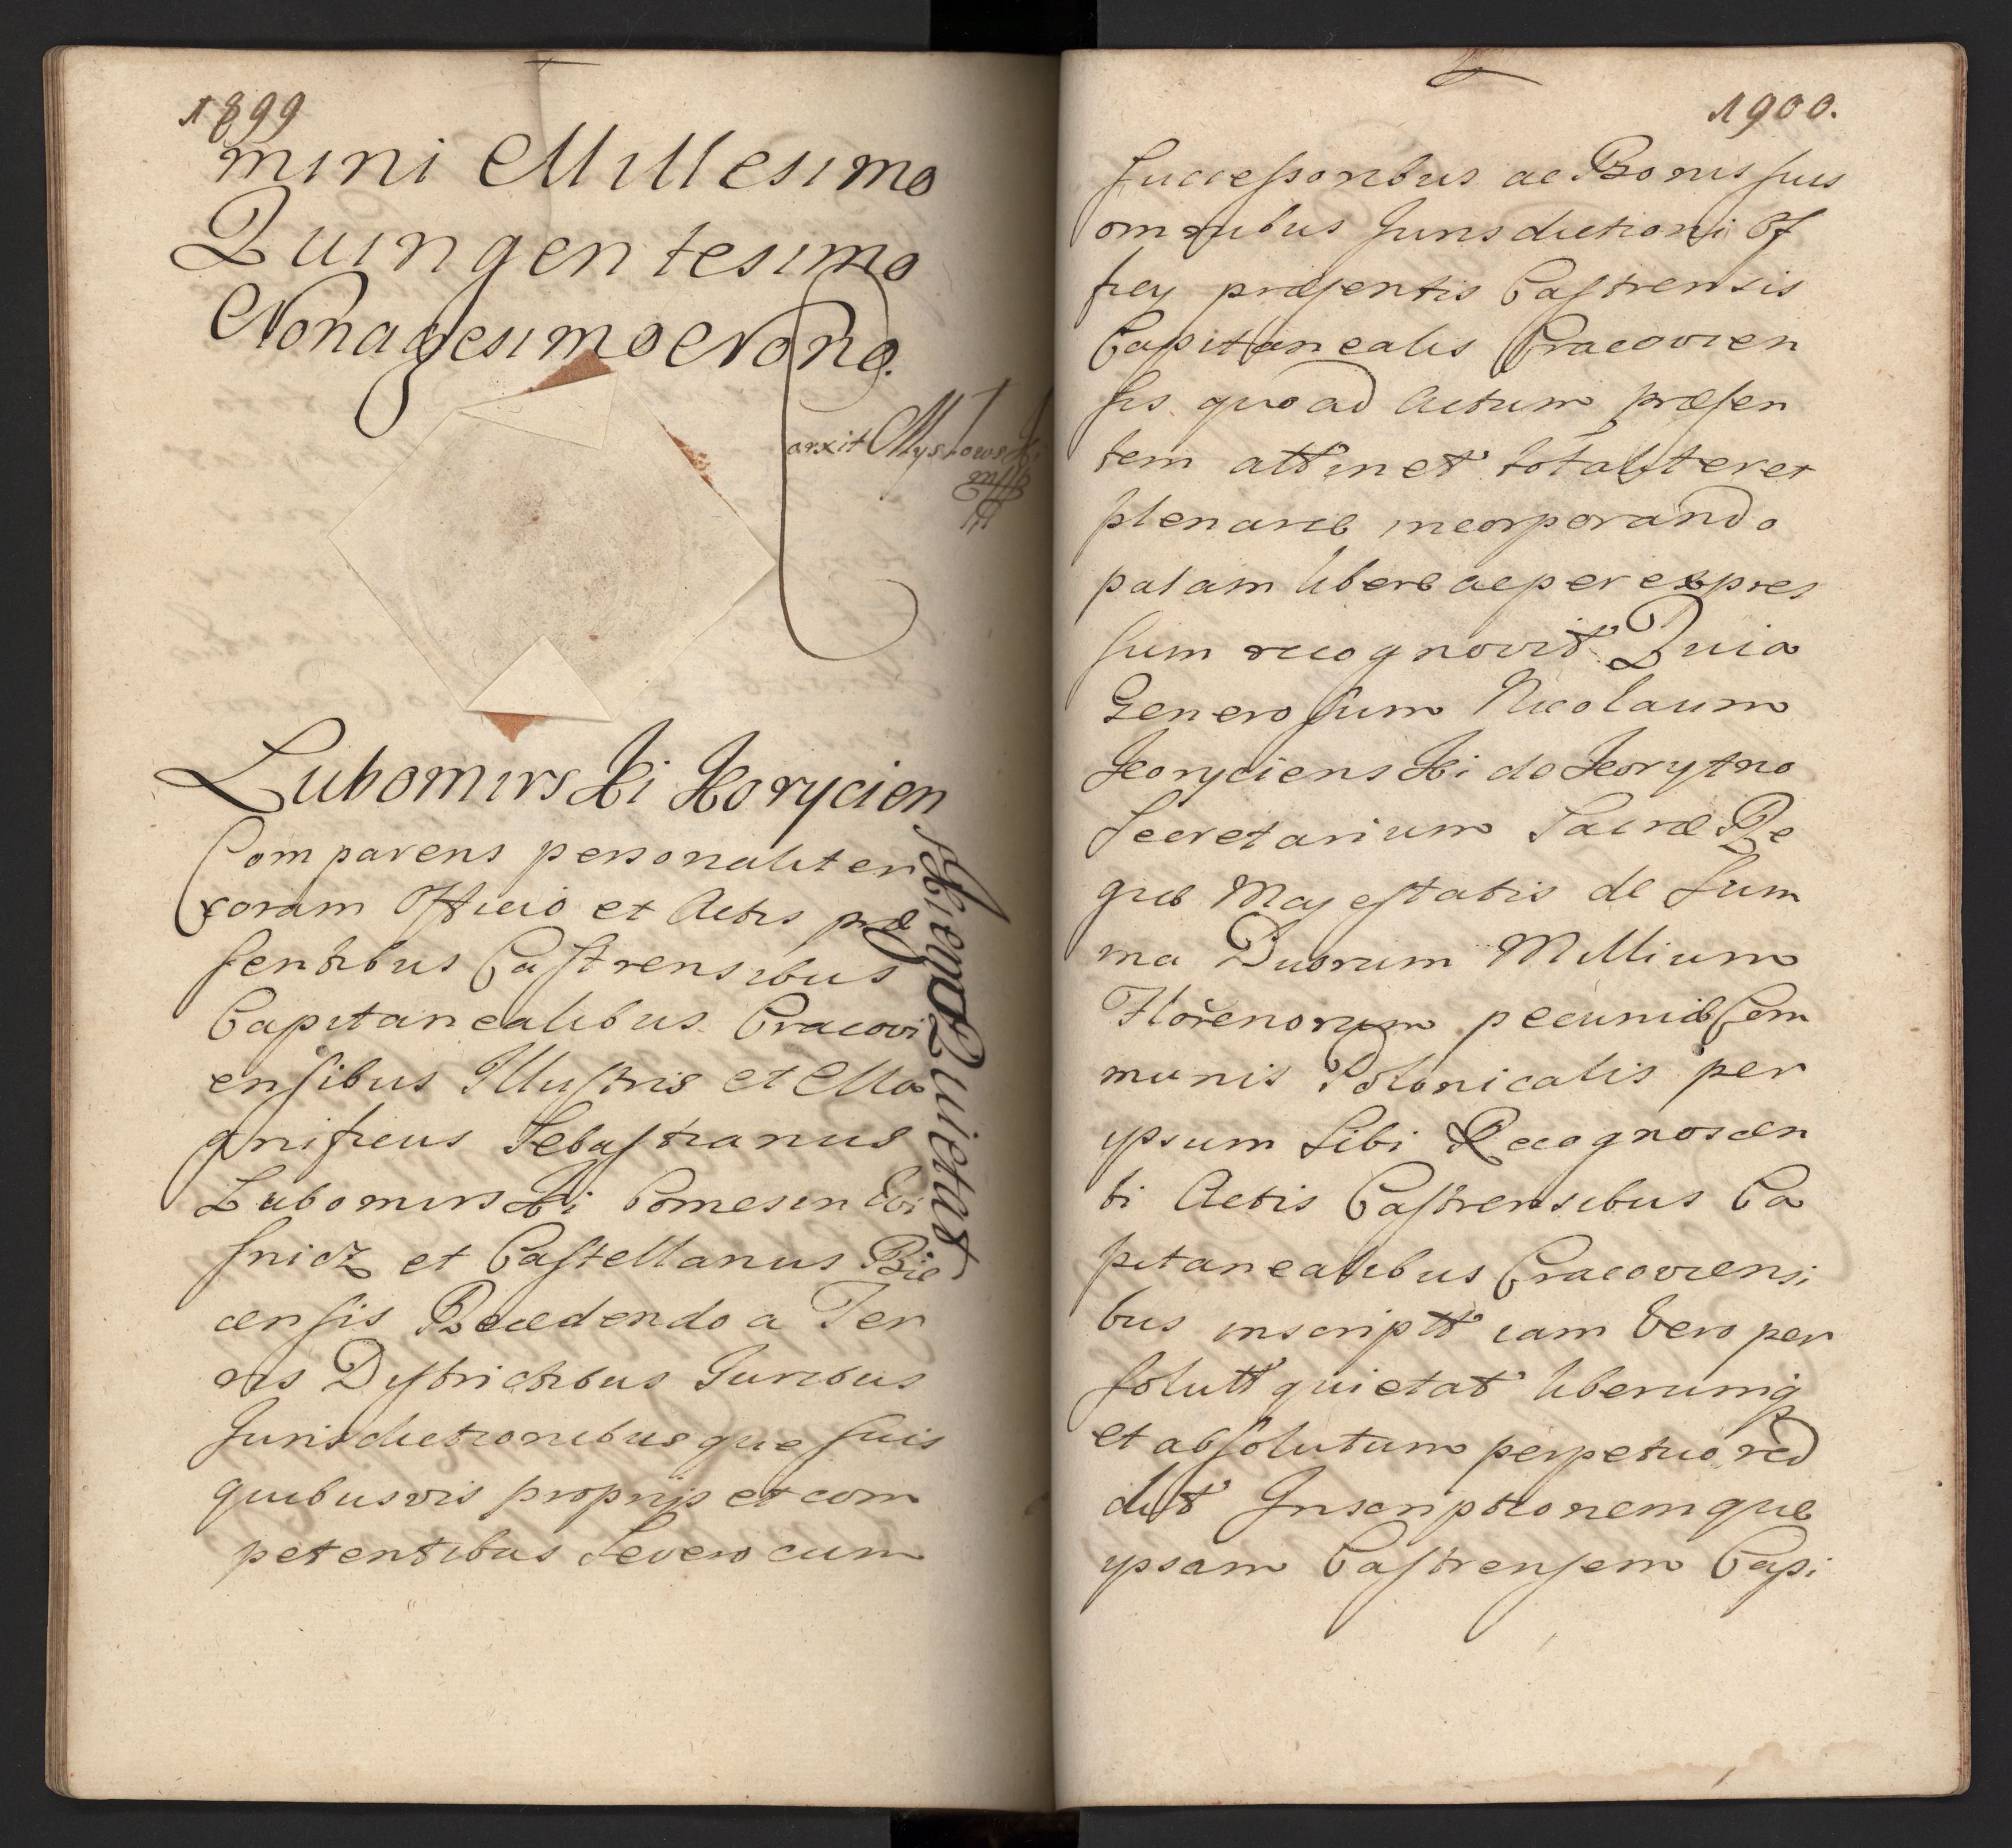 1899
mini Millesimo
Quingentesimo
Nonagesimo Nono.
arxit Myslowski
Lubomirski Korycien
skiego Quietat
Comparens personaliter
coram Officio et Actis præ
sentibus Castrensibus
Capitanealibus Cracovi
ensibus Illustris et Ma
gnificus Sebastianus
Lubomirski Comes in Wi
snicz et Castellanus Bie
censis Recedendo a Ter
ris Districtibus Juribus
Jurisdictionibusque suis
quibusvis proprijs et com
petentibus Severo cum
1900.
Successoribus ac Bonis suis
omnibus Jurisdictioni Of
ficij præsentis Castrensis
Capitanealis Cracovien
sis quo ad Actum præsen
tem attinet totaliter et
plenarie incorporando
palam libere ac per expres
sum recognovit Quia
Generosum Nicolaum
Korycienski de Korytno
Secretarium Sacræ Re
giæ Majestatis de Sum
ma Duorum Millium
Florenorum pecuniæ Com
munis Polonicalis per
ipsum Sibi Recognoscen
ti Actis Castrensibus Ca
pitanealibus Cracoviensi
bus inscriptt iam Vero per
solutt quietat liberumq
et absolutum perpetuo red
dit Inscriptionemque
ipsam Castrensem Capi